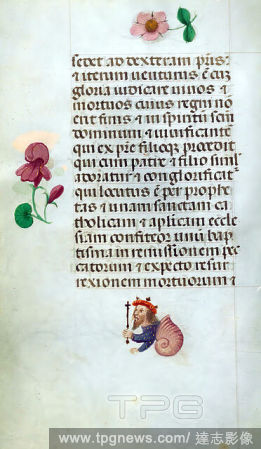 sedet ad dexteram pris:
et iterum venturus ē cuz
gloria iudicare vivos et
mortuos cuius regni no
erit finis et in spiritū scm̄
dominum et vivificante
qui ex pre filioqz procedit
qui cum patre et filio simul
adoratur et conglorificat
qui locutus ē per prophe
tas et unam sanctam ca
tholicam et aplicam eccle
siam confiteor unū bap
tisma in remissionem pec
catorum et expecto resur
rexionem mortuorum et
TPG
www.tpgnews.com/ 達志影像